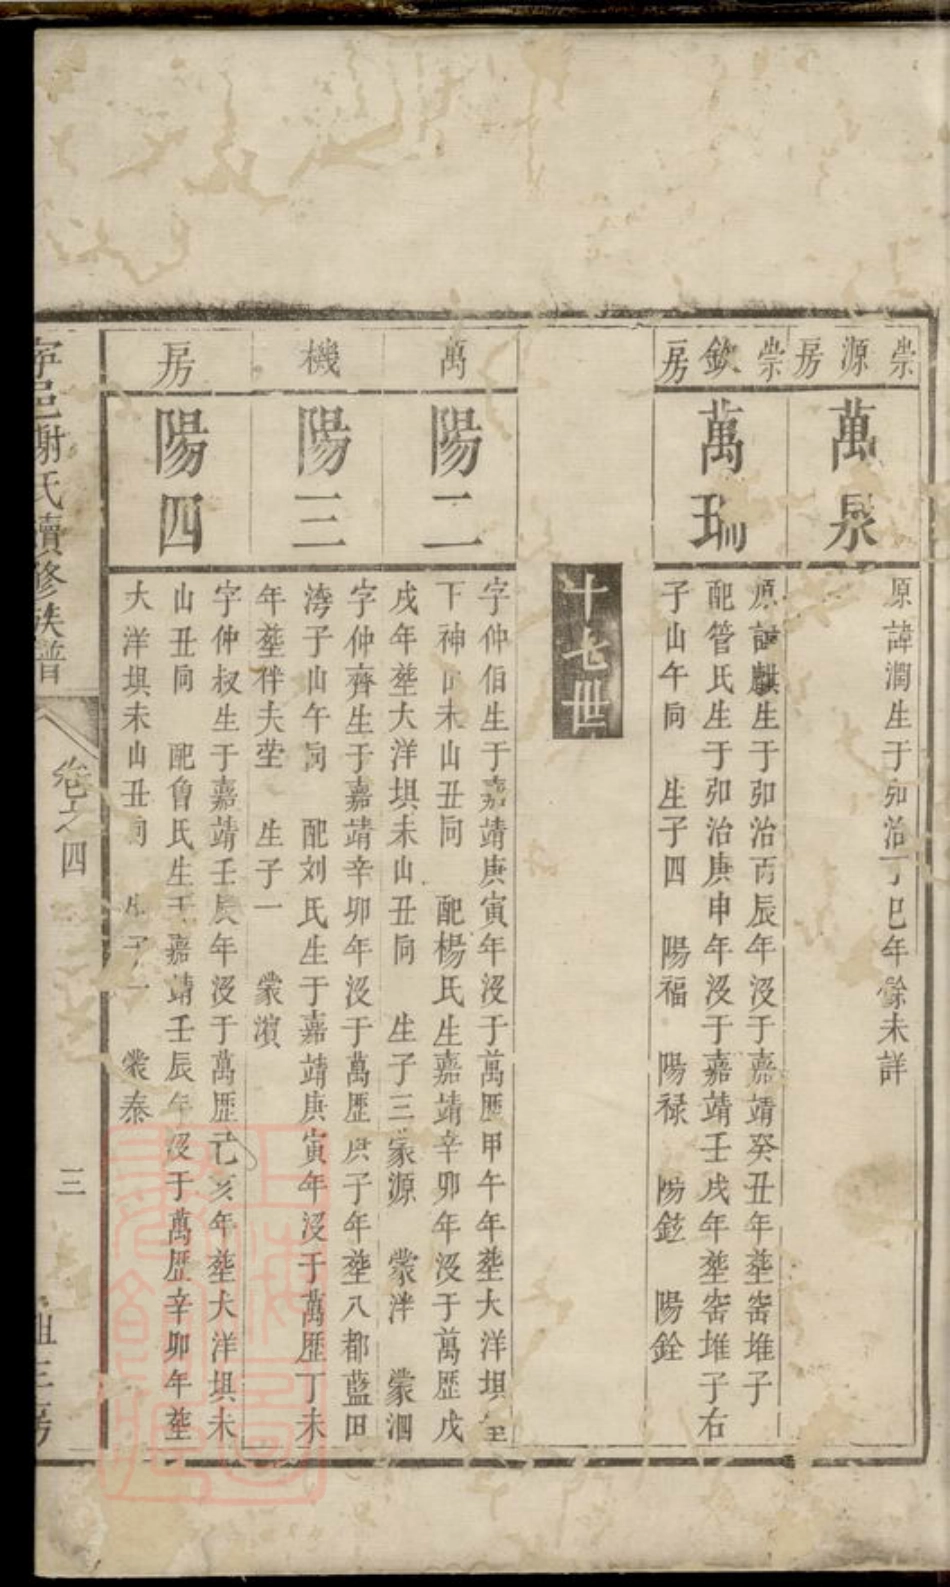 崇源房
萬泉
原諱潤生于卯治丁巳年餘未詳
崇欽房
萬瑞
原諱麒生于卯治丙辰年沒于嘉靖癸丑年塟窑堆子
配管氏生于卯治庚申年沒于嘉靖壬戌年塟窑堆子右
子山午向 生子四 陽福 陽禄 陽鉉 陽銓
十七世
萬機房
陽二
字仲伯生于嘉靖庚寅年沒于萬歷甲午年塟大洋垻
下神 未山丑向 配楊氏生嘉靖辛卯年沒于萬歷戊
戌年塟大洋垻未山丑向 生子三 蒙源 蒙泮 蒙泗
陽三
字仲齊生于嘉靖辛卯年沒于萬歷庚子年塟八都藍田
灣子山午向 配刘氏生于嘉靖庚寅年沒于萬歷丁未
年塟伴夫塋 生子一 蒙濱
陽四
字仲叔生于嘉靖壬辰年沒于萬歷己亥年塟大洋垻未
山丑向 配魯氏生于嘉靖壬辰年沒于萬歷辛卯年塟
大洋垻未山丑向 生子一 蒙泰
謝氏續修族譜
卷之四
三